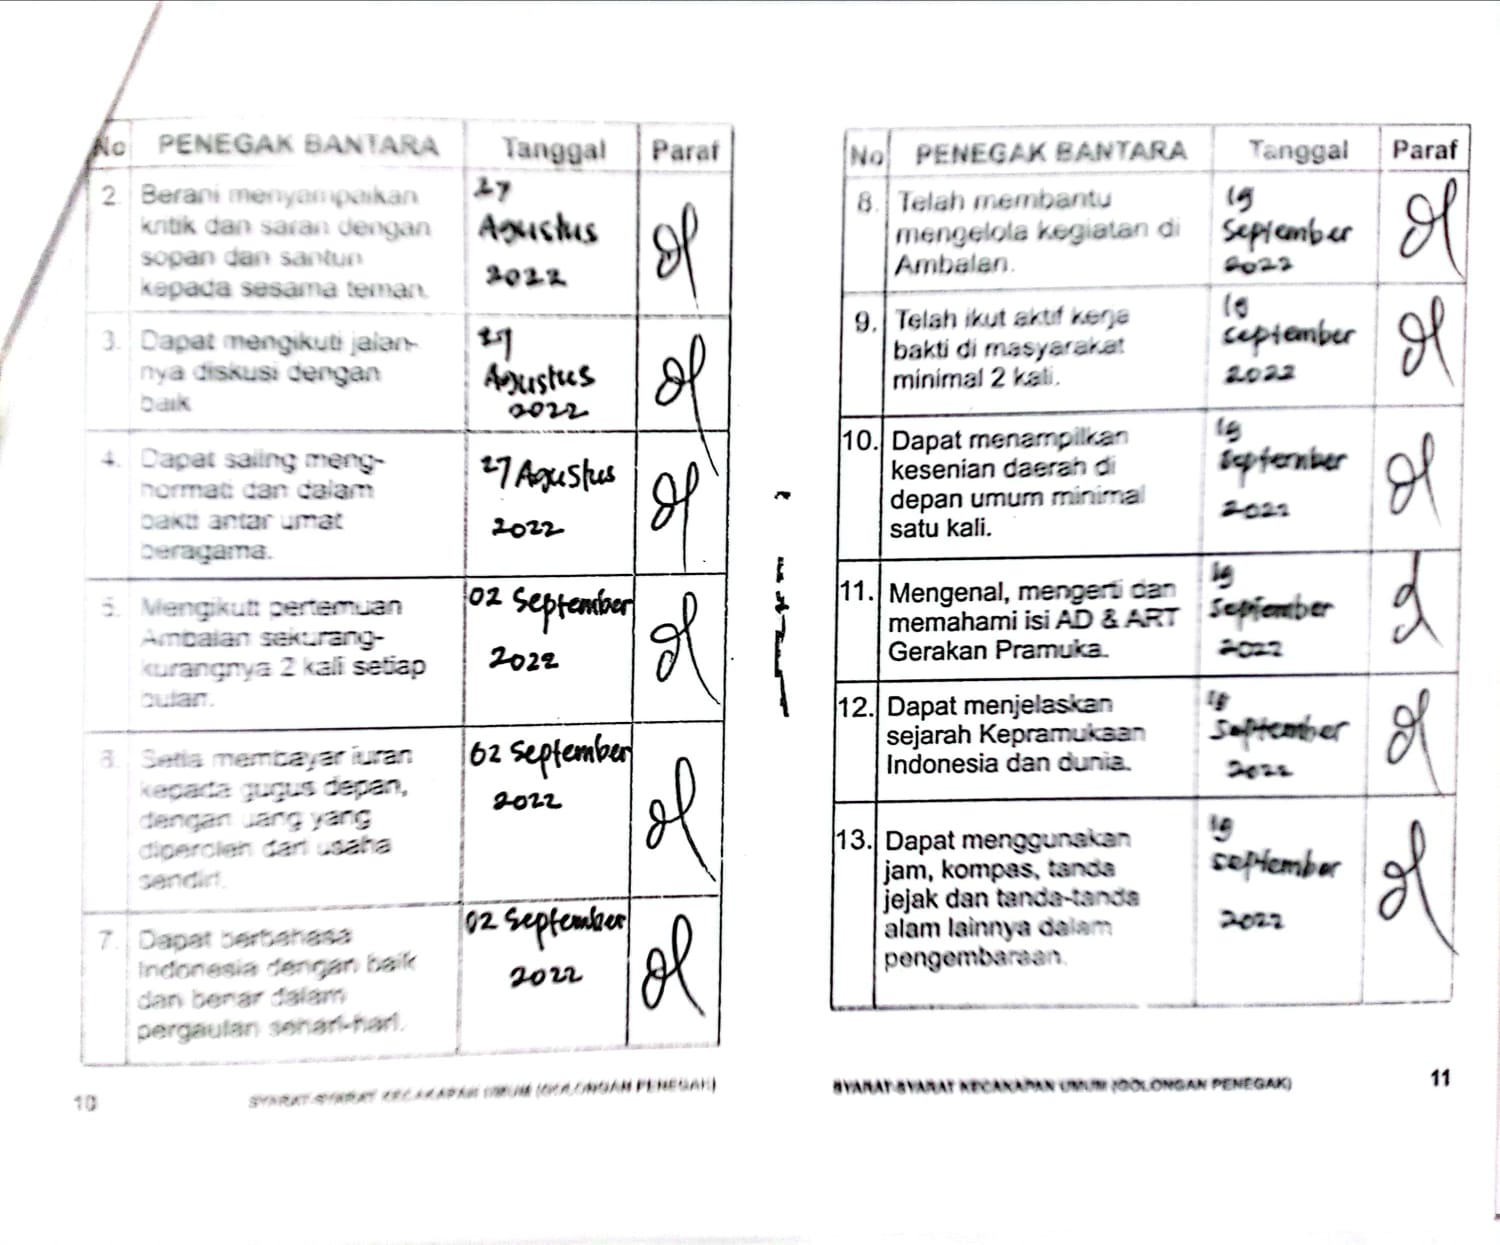 No PENEGAK BANTARA Tanggal Paraf
2. Berani menyampaikan
kritik dan saran dengan
sopan dan santun
kepada sesama teman.
27
Agustus
2022
3. Dapat mengikuti jalan-
nya diskusi dengan
baik
27
Agustus
2022
4. Dapat saling meng-
hormati dan dalam
bakti antar umat
beragama.
27 Agustus
2022
5. Mengikuti pertemuan
Ambalan sekurang-
kurangnya 2 kali setiap
bulan.
02 September
2022
6. Setia membayar iuran
kepada gugus depan,
dengan uang yang
diperoleh dari usaha
sendiri.
02 September
2022
7. Dapat berbahasa
Indonesia dengan baik
dan benar dalam
pergaulan sehari-hari.
02 September
2022
10 SYARAT-SYARAT KECAKAPAN UMUM (GOLONGAN PENEGAK)
No PENEGAK BANTARA Tanggal Paraf
8. Telah membantu
mengelola kegiatan di
Ambalan.
19
September
2022
9. Telah ikut aktif kerja
bakti di masyarakat
minimal 2 kali.
19
September
2022
10. Dapat menampilkan
kesenian daerah di
depan umum minimal
satu kali.
19
September
2022
11. Mengenal, mengerti dan
memahami isi AD & ART
Gerakan Pramuka.
19
September
2022
12. Dapat menjelaskan
sejarah Kepramukaan
Indonesia dan dunia.
19
September
2022
13. Dapat menggunakan
jam, kompas, tanda
jejak dan tanda-tanda
alam lainnya dalam
pengembaraan.
19
September
2022
SYARAT-SYARAT KECAKAPAN UMUM (GOLONGAN PENEGAK) 11